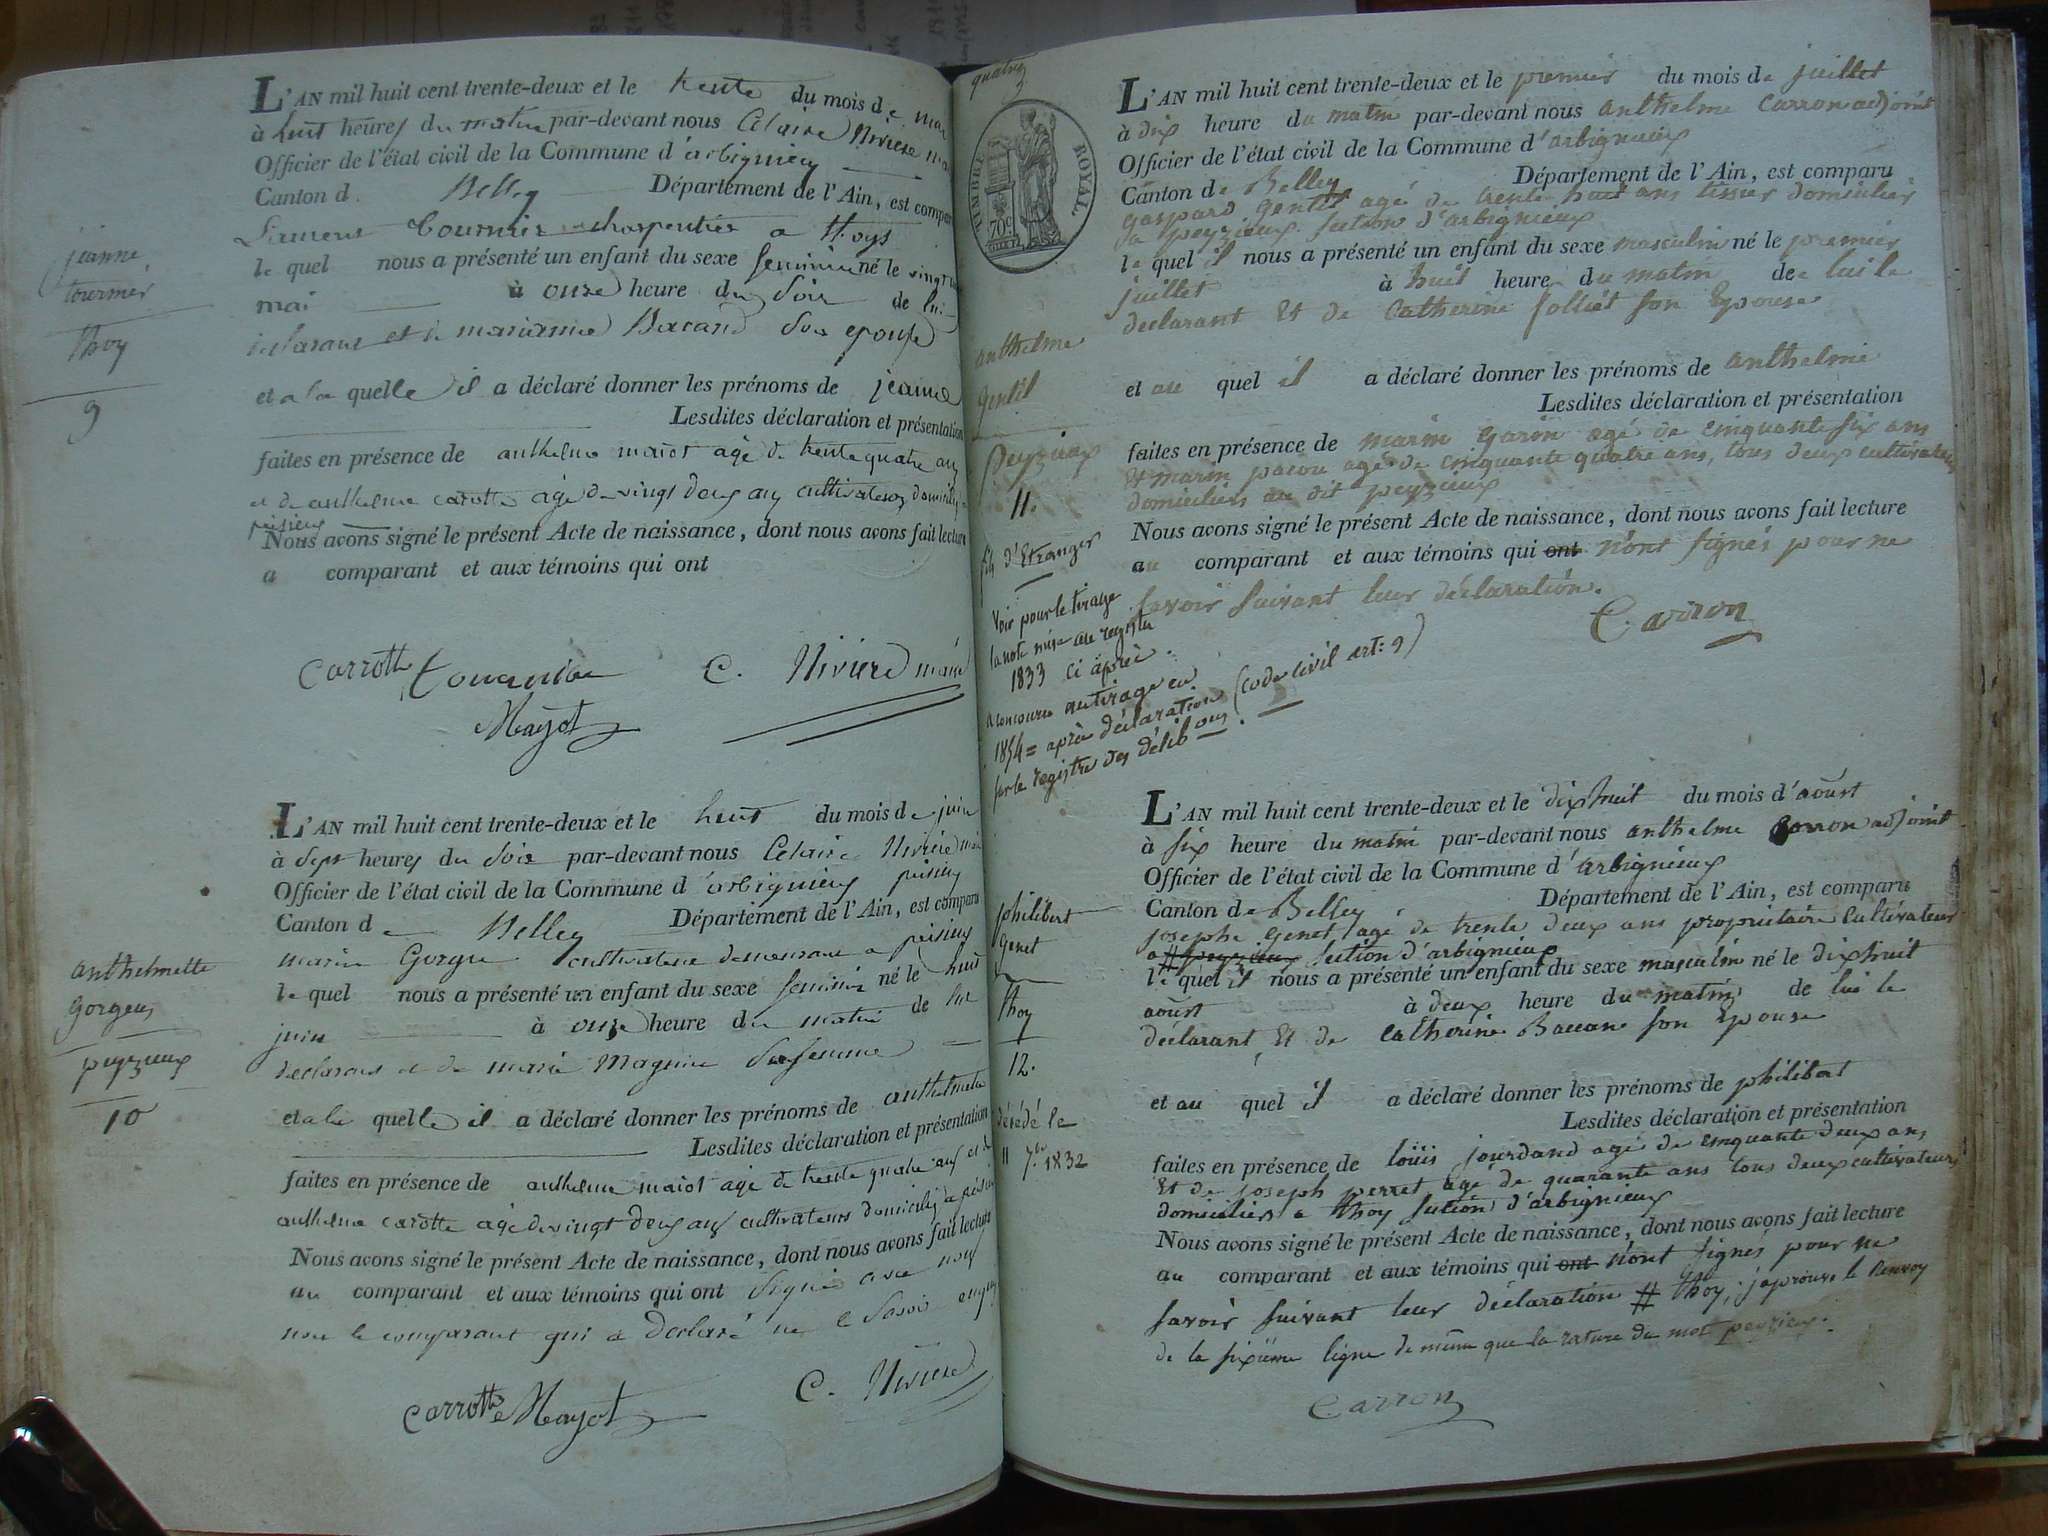 jeanne
tournier
thoy
9
L'AN mil huit cent trente-deux et le trente du mois de mai
à huit heures du matin par-devant nous Celaire Nivière
Officier de l'état civil de la Commune d'arbignieu
Canton d. Belley Département de l'Ain, est compar
Laurent tournier charpentier a thoys
le quel nous a présenté un enfant du sexe feminin né le vingt
mai à onze heure du soir de lui
declarant et de marianne Bacand son epouse
et a la quelle il a déclaré donner les prénoms de jeanne
Lesdites déclaration et présentation
faites en présence de anthelme maiot agé de trente quatre ans
et de anthelme carotte agé de vingt deux ans cultivateurs
peisieu
Nous avons signé le présent Acte de naissance, dont nous avons fait lecture
a comparant et aux témoins qui ont
Carrotte tournier C. Nivière maire
Mayot
anthelmette
gorgeus
peyzieux
10
L'AN mil huit cent trente-deux et le huit du mois de juin
à sept heures du soir par-devant nous Celaire Nivière
Officier de l'état civil de la Commune d'arbignieu peisieu
Canton d Belley Département de l'Ain, est comparu
marin Gorgeu cultivateur demeurant a peisieu
le quel nous a présenté un enfant du sexe feminin né le huit
juin à onze heure du matin de lui
declarant et de marie Magnin sa femme
et a la quelle il a déclaré donner les prénoms de anthelmette
Lesdites déclaration et présentation
faites en présence de anthelme maiot agé de trente quatre ans et de
anthelme carotte agé de vingt deux ans cultivateurs domiciliés a peisieu
Nous avons signé le présent Acte de naissance, dont nous avons fait lecture
au comparant et aux témoins qui ont signé avec nous
non le comparant qui a declaré ne le savoir
Carrotte Mayot C. Nivière
quatre
TIMBRE ROYAL
70c
anthelme
gentil
peyzieux
11.
fils d'Etranger
Voir pour le tirage
la note mise au registre
1833 ci après.
a concouru au tirage en
1854 = après déclaration (code civil art: 9)
sur le registre des délibons.
L'AN mil huit cent trente-deux et le premier du mois de juillet
à dix heure du matin par-devant nous anthelme Carron adjoint
Officier de l'état civil de la Commune d'arbignieux
Canton de Belley Département de l'Ain, est comparu
gaspard gentil agé de trente huit ans tissier domicilier
a peyzieux section d'arbignieux
le quel il nous a présenté un enfant du sexe masculin né le premier
juillet à huit heure du matin de lui le
déclarant Et de Catherine Jolliet son Epouse
et au quel il a déclaré donner les prénoms de anthelme
Lesdites déclaration et présentation
faites en présence de marin garin agé de cinquante six ans
Et marin pacou agé de cinquante quatre ans, tous deux cultivateurs
domiciliers au dit peyzieux
Nous avons signé le présent Acte de naissance, dont nous avons fait lecture
au comparant et aux témoins qui ont n'ont signés pour ne
savoir suivant leur déclaration.
Carron
philibert
genet
thoy
12.
décédé le
11 7bre 1832
L'AN mil huit cent trente-deux et le dix huit du mois d'aoust
à six heure du matin par-devant nous anthelme Carron adjoint
Officier de l'état civil de la Commune d'arbignieux
Canton de Belley Département de l'Ain, est comparu
josephe genet agé de trente deux ans proprietaire cultivateur
a # peyzieux section d'arbignieux
le quel il nous a présenté un enfant du sexe masculin né le dix huit
aoust à deux heure du matin de lui le
déclarant Et de Catherine Baccan son Epouse
et au quel il a déclaré donner les prénoms de philibert
Lesdites déclaration et présentation
faites en présence de loüis jourdand agé de cinquante deux ans
Et de joseph perret agé de quarante ans tous deux cultivateurs
domiciliers a thoy section d'arbignieux
Nous avons signé le présent Acte de naissance, dont nous avons fait lecture
au comparant et aux témoins qui ont n'ont signés pour ne
savoir suivant leur déclaration # thoy, j'aprouve le Renvoy
de la sixième ligne de même que la rature du mot peyzieux.
Carron